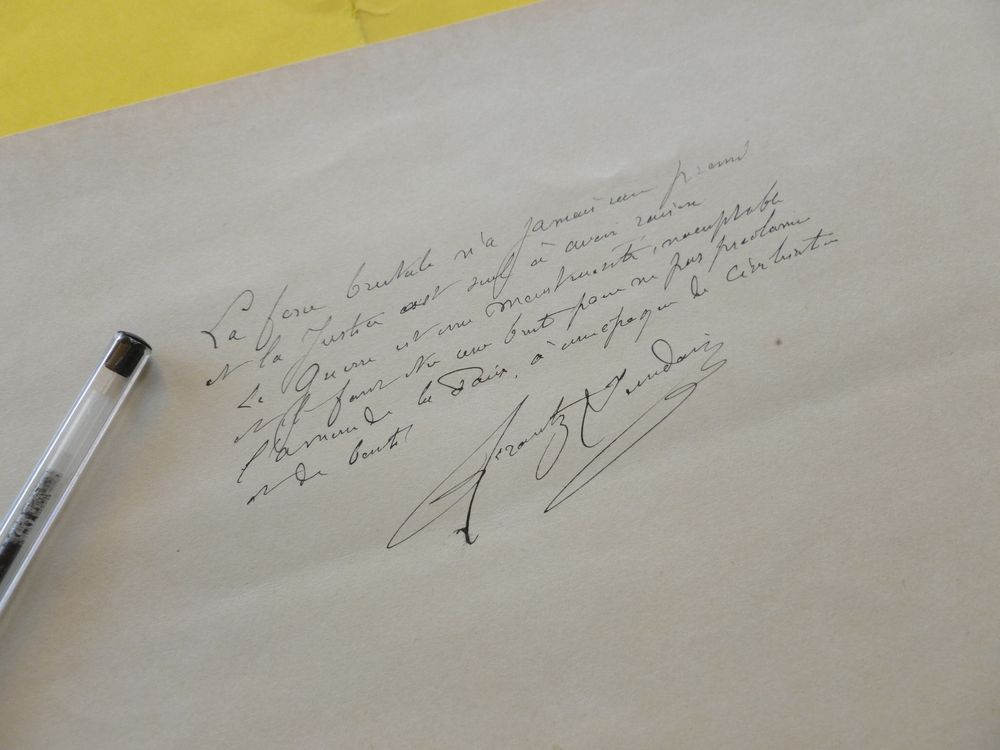 La force brutale n'a jamais rien prouvé
et la Justice est seule à avoir raison
La Guerre est une monstruosité, inacceptable
et il faut être une brute pour ne pas proclamer
l'amour de la Paix, à une époque de civilisation
et de bonté